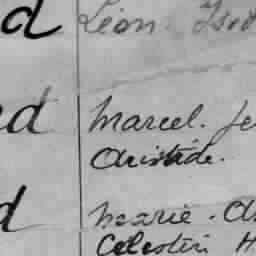 d Léon Isid
ed Marcel. Je
Aristide.
d Marie. A
Célestin H